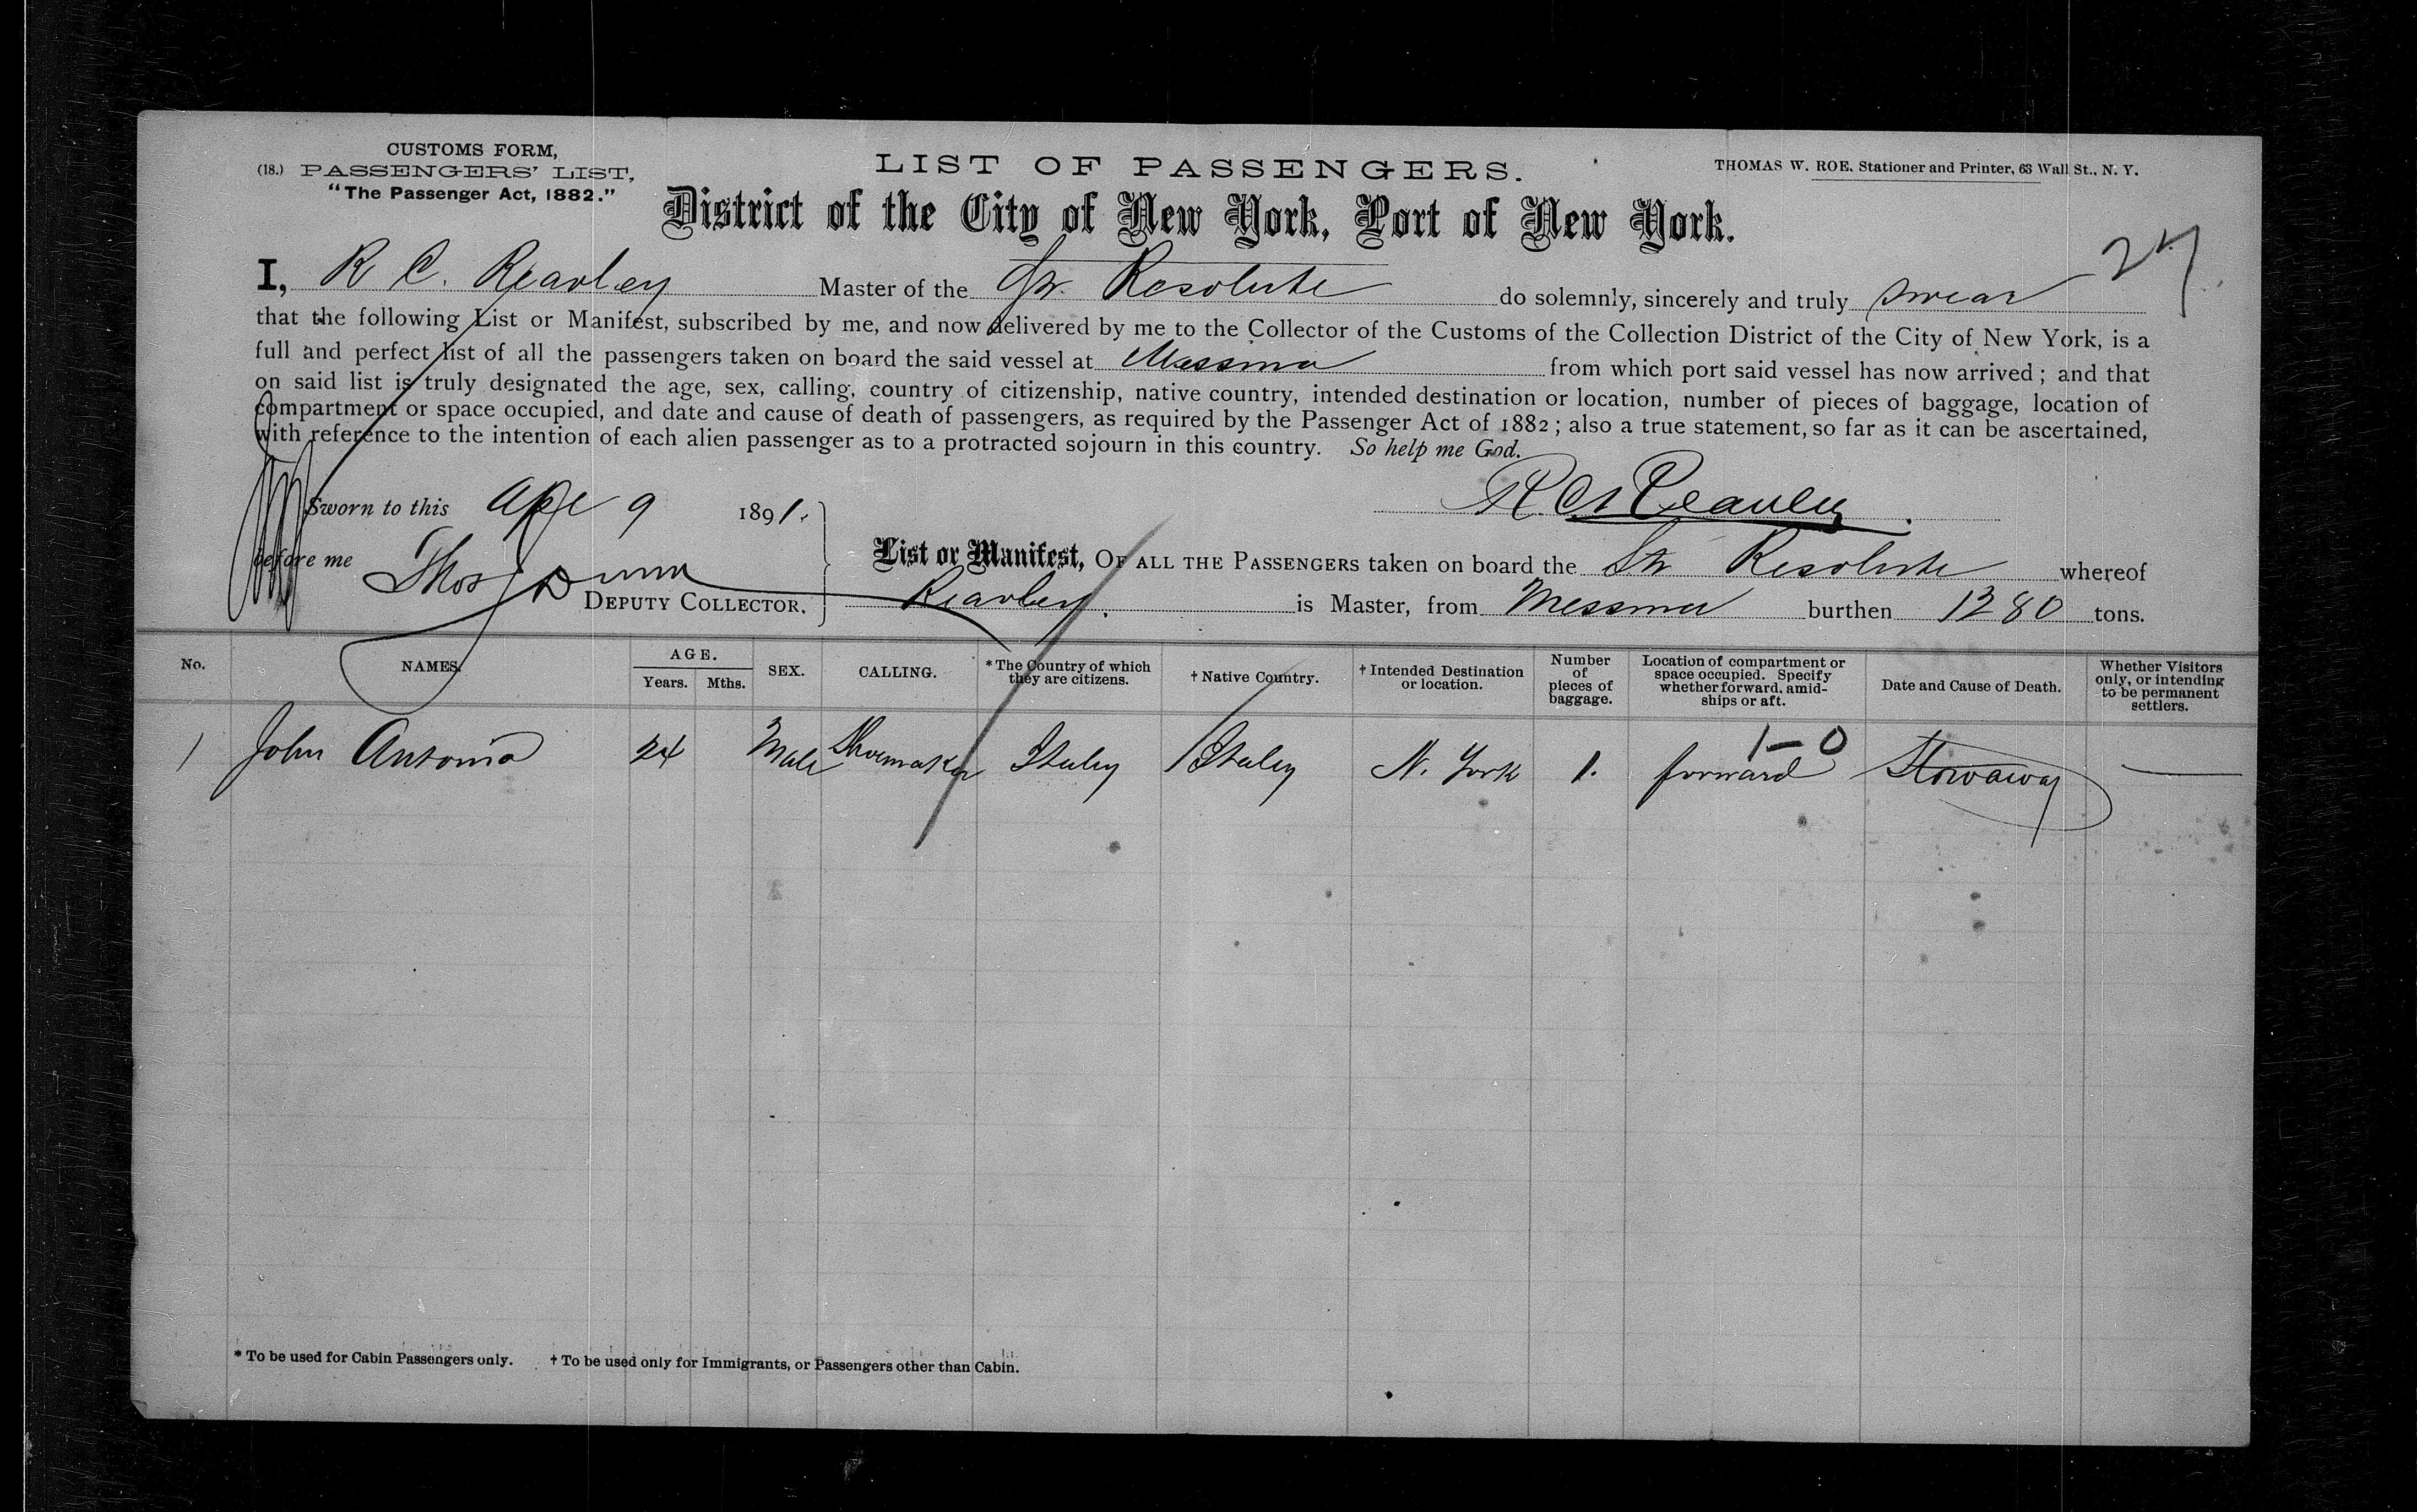 CUSTOMS FORM,
(18.) PASSENGERS' LIST,
"The Passenger Act, 1882."
LIST OF PASSENGERS.
THOMAS W. ROE, Stationer and Printer, 63 Wall St., N. Y.
District of the City of New York, Port of New York.
27
I, R C. Reavley Master of the Str. Resolute do solemnly, sincerely and truly swear
that the following List or Manifest, subscribed by me, and now delivered by me to the Collector of the Customs of the Collection District of the City of New York, is a
full and perfect list of all the passengers taken on board the said vessel at Messina from which port said vessel has now arrived; and that
on said list is truly designated the age, sex, calling, country of citizenship, native country, intended destination or location, number of pieces of baggage, location of
compartment or space occupied, and date and cause of death of passengers, as required by the Passenger Act of 1882; also a true statement, so far as it can be ascertained,
with reference to the intention of each alien passenger as to a protracted sojourn in this country. So help me God.
R. C. Reavley.
Sworn to this Apl 9 1891.
before me Thos Dunn
DEPUTY COLLECTOR.
List or Manifest, OF ALL THE PASSENGERS taken on board the Str Resolute whereof
Reavley. is Master, from Messina burthen 1280 tons.
No. NAMES. AGE. Years. Mths. SEX. CALLING. *The Country of which they are citizens. † Native Country. † Intended Destination or location. Number of pieces of baggage. Location of compartment or space occupied. Specify whether forward, amidships or aft. Date and Cause of Death. Whether Visitors only, or intending to be permanent settlers.
1—0
1 John Antonio 24 Male Shoemaker Italy Italy N. York 1. forward Stowaway —
* To be used for Cabin Passengers only. † To be used only for Immigrants, or Passengers other than Cabin.